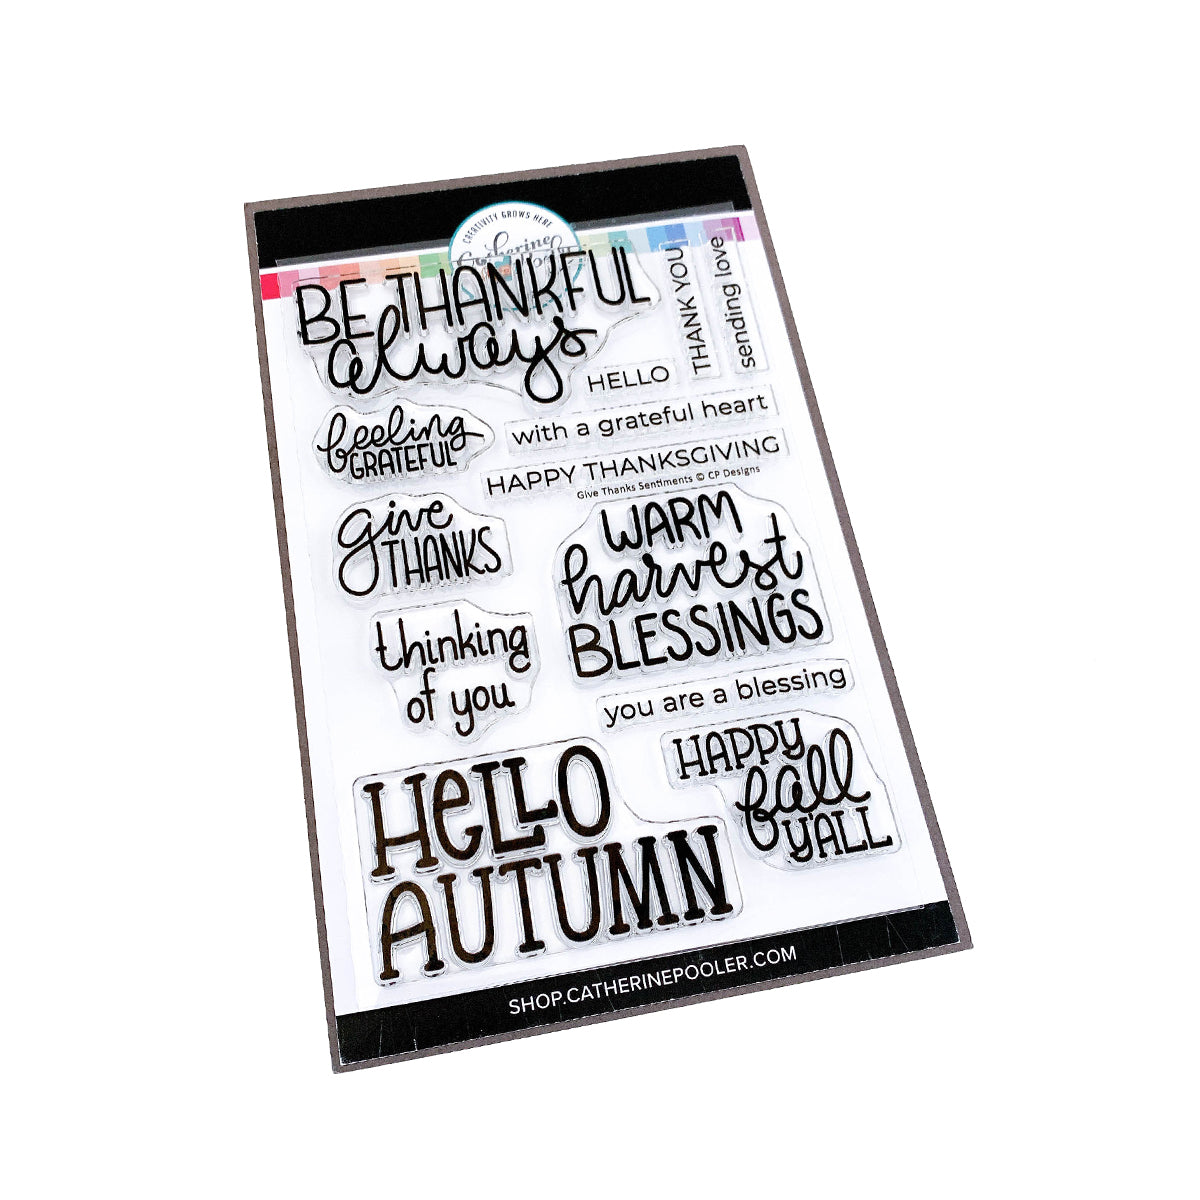 CREATIVITY GROWS HERE
Catherine
BE THANKFUL
always
HELLO
THANK YOU
sending love
feeling
GRATEFUL
with a grateful heart
HAPPY THANKSGIVING
Give Thanks Sentiments © CP Designs
give
THANKS
WARM
harvest
BLESSINGS
thinking
of you
you are a blessing
HAPPY
fall
Y'ALL
HELLO
AUTUMN
SHOP.CATHERINEPOOLER.COM